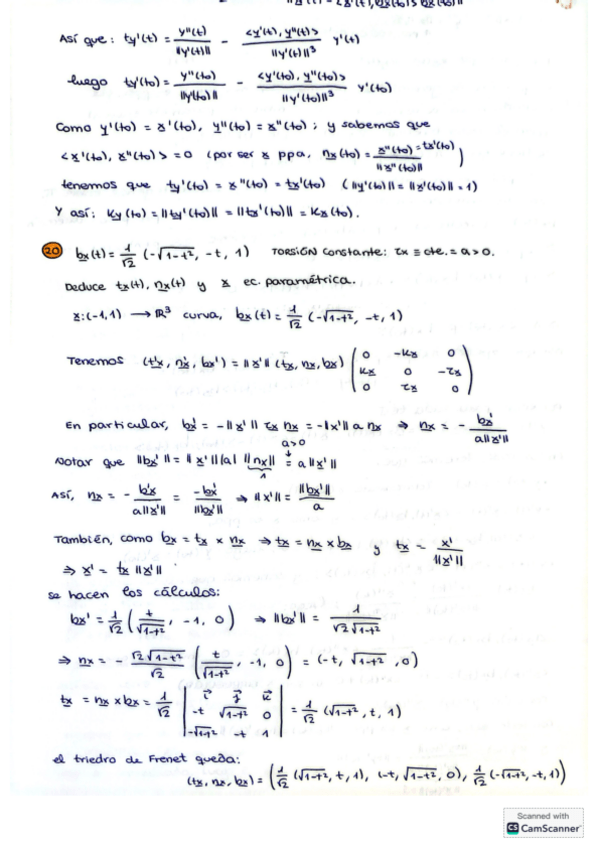 Así que: ty'(t) = y''(t) / ||y'(t)|| - <y'(t), y''(t)> / ||y'(t)||³ y'(t)
luego ty'(to) = y''(to) / ||y'(to)|| - <y'(to), y''(to)> / ||y'(to)||³ y'(to)
Como y'(to) = x'(to), y''(to) = x''(to); y sabemos que
<x'(to), x''(to)> = 0 (por ser x ppa, nx(to) = x''(to) = tx'(to) / ||x''(to)||)
tenemos que ty'(to) = x''(to) = tx'(to) (||y'(to)|| = ||x'(to)|| = 1)
Y así: Ky(to) = ||ty'(to)|| = ||tx'(to)|| = Kx(to).
20 bx(t) = 1/√2 (-√1-t², -t, 1) TORSIÓN constante: τx ≡ cte. = a > 0.
Deduce tx(t), nx(t) y x ec. paramétrica.
x: (-1,1) → ℝ³ curva, bx(t) = 1/√2 (-√1-t², -t, 1)
Tenemos (tx', nx', bx') = ||x'|| (tx, nx, bx) ( 0 -Kx 0
Kx 0 -τx
0 τx 0 )
En particular, bx' = -||x'|| τx nx = -||x'|| a nx ⇒ nx = - bx' / a||x'||
a>0
Notar que ||bx'|| = ||x'|| |a| ||nx|| = a ||x'||
1
Así, nx = - bx' / a||x'|| = -bx' / ||bx'|| ⇒ ||x'|| = ||bx'|| / a
También, como bx = tx × nx ⇒ tx = nx × bx y tx = x' / ||x'||
⇒ x' = tx ||x'||
se hacen los cálculos:
bx' = 1/√2 ( t/√1-t², -1, 0 ) ⇒ ||bx'|| = 1 / √2 √1-t²
⇒ nx = - √2 √1-t² / √2 ( t/√1-t², -1, 0 ) = (-t, √1-t², 0)
tx = nx × bx = 1/√2 | i j k
-t √1-t² 0
-√1-t² -t 1 | = 1/√2 (√1-t², t, 1)
el triedro de Frenet queda:
(tx, nx, bx) = ( 1/√2 (√1-t², t, 1), (-t, √1-t², 0), 1/√2 (-√1-t², -t, 1) )
Scanned with
CS CamScanner